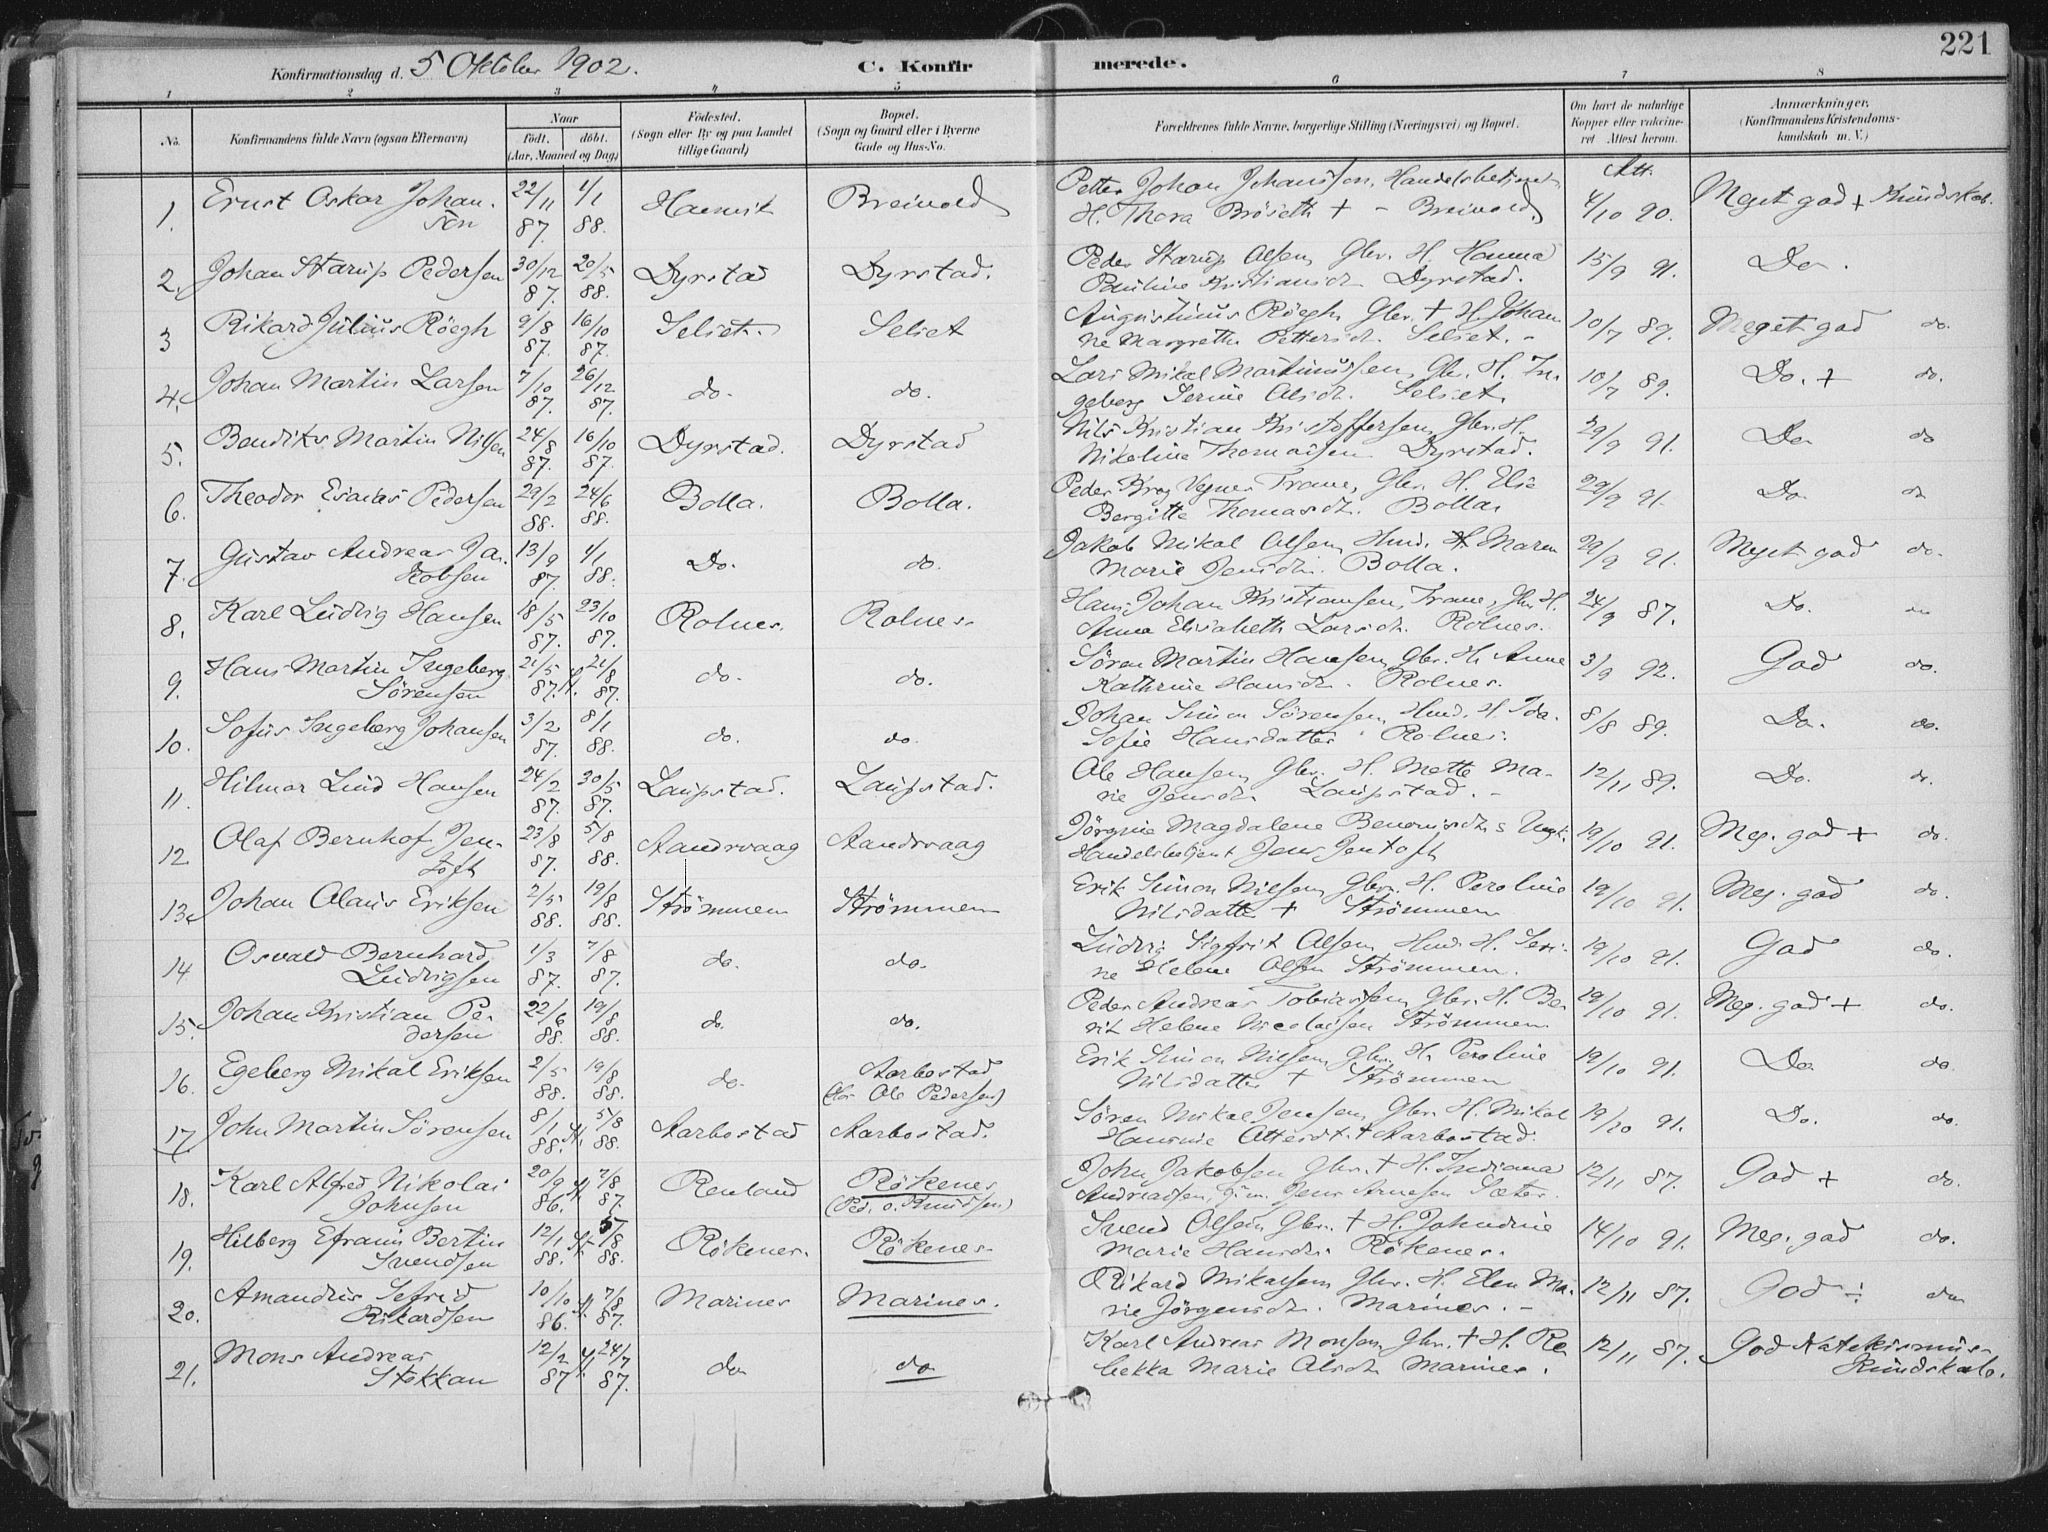 221
Konfirmationsdag d. 5 Oktober 1902.
C. Konfirmerede.
1 2 3 4 5 6 7 8
No.
Konfirmandens fulde Navn (ogsaa Efternavn)
Naar
født. døbt.
(Aar, Maaned og Dag)
Fødested.
(Sogn eller By og paa Landet
tillige Gaard)
Bopæl.
(Sogn og Gaard eller i Byerne
Gade og Hus-No.
Forældrenes fulde Navne, borgerlige Stilling (Næringsvei) og Bopæl.
Om havt de naturlige
Kopper eller vakcine-
ret Attest herom.
Anmærkninger.
(Konfirmandens Kristendoms-
kundskab m. V.)
1. Ernst Oskar Johan- 22/11 1/1 Havnvik Breivold Petter Johan Johanssen, Handelsbetjent Att. Meget god + Kundskab.
sen 87. 88. H. Thora Brøseth + - Breivold 4/10 90.
2. Johan Starup Pedersen 30/12 20/5 Dyrstad Dyrstad. Peder Starup Olsen Gbr. H. Hanna 15/9 91. Do.
87. 88. Pauline Kristiansdt. Dyrstad.
3 Rikard Julius Røegh 9/8 16/10 Selset. Selset Augustinus Røegh Gbr. + H. Johan- 10/7 89. Meget god do.
87. 87. ne Margrethe Pettersdt. Selset. -
4. Johan Martin Larsen 7/10 26/12 do. do. Lars Mikal Martinussen, Gbr. H. In- 10/7 89. Do. + do.
87. 87. geberg Serine Olsdt. Selset.
5. Bendiks Martin Nilsen 24/8 16/10 Dyrstad. Dyrstad Nils Kristian Kristoffersen Gbr. H. 29/9 91. Do do
87. 87. Nikoline Thomassen Dyrstad.
6. Theodor Esaias Pedersen 29/2 24/6 Bolla. Bolla. Peder Krog Vegner Trane, Gbr. H. Elie 29/9 91. Do do
88. 88. Bergitte Thomasdt. Bolla.
7. Gustav Andreas Ja- 13/9 1/1 Do. do. Jakob Mikal Olsen, Hmd. H. Maren 29/9 91. Meget god do.
kobsen 87. 88. Marie Jensdt. Bolla.
8. Karl Ludvig Hansen 18/5 23/10 Rolnes. Rolnes. Hans Johan Kristiansen, Trane, Gbr. H. 24/9 87. Do. do
87. 87. Anna Elisabeth Larsdt. Rolnes.
9. Hans Martin Ingeberg 21/5 21/8 do. do. Søren Martin Hansen, Gbr. H. Anne 3/9 92. God do.
Sørensen 87. 87. Kathrine Hansdt. Rolnes.
10. Sofus Ingeberg Johansen 3/2 8/1 do. do. Johan Simon Sørensen, Hmd. H. Ida- 8/8 89. Do. do.
87. 88. Sofie Hansdatter Rolnes.
11. Hilmar Lind Hansen 24/2 30/5 Laupstad. Laupstad. Ole Hansen, Gbr. H. Mette Ma- 12/11 89. Do. do.
87. 87. rie Jensdt. Laupstad. -
12 Olaf Bernhof Jen- 23/8 5/8 Aandvaag Aandvaag Jørgine Magdalene Benonisdt. & Ungk. 19/10 91. Meg. god + do.
toft 87. 88. Handelsbetjent Jens Jentoft
13. Johan Olaus Eriksen 2/5 19/8 Strømmen Strømmen Erik Simon Nilsen, Gbr. H. Peroline 19/10 91. Meg. god do.
88. 88. Nilsdatter + Strømmen
14 Osvald Bernhard 1/3 7/8 do. do. Ludvig Sigfrit Olsen, Hmd. H. Seri- 19/10 91. God do.
Ludvigsen 87. 87. ne Helene Olsen Strømmen.
15. Johan Kristian Pe- 22/6 19/8 do. do. Peder Andreas Tobiassen, Gbr. H. Be- 19/10 91. Meg. god + do.
dersen 88. 88. rit Helene Nicolaisen Strømmen
16. Egeberg Mikal Eriksen 2/5 19/8 do. Aarbostad Erik Simon Nilsen, Gbr. H. Peroline 19/10 91. Do do
88. 88. (hos Ole Pedersen) Nilsdatter + Strømmen
17. John Martin Sørensen 8/1 5/8 Aarbostad Aarbostad. Søren Mikal Jensen, Gbr. H. Mikal 19/10 91. Do. do.
88. 88. Hansine Ottersdt. + Aarbostad.
18. Karl Alfred Nikolai 20/9 7/8 Renland Røkenes John Jakobsen Gbr. + H. Indiana 12/11 87. God + do.
Johnsen 86. 87. (Ped. o. Knudsen) Andreassen, Jens Arnesen Sæter.
19. Hilberg Efraim Bertin 12/1 5/8 Røkenes. Røkenes Svend Olsen Gbr. + H. Johndine 14/10 91. Meg. god do.
Svendsen 88. 88. Marie Hansdt. Røkenes.
20. Amandus Sefrid 10/10 7/8 Marines Marines. Rikard Mikalsen, Gbr. H. Elen Ma- 12/11 87. God ÷ do
Rikardsen 86. 87. rie Jørgensdt. Marines. -
21. Mons Andreas 12/2 24/7 do do Karl Andreas Monsen, Gbr. + H. Re- 12/11 87. God Katekismus-
Stokkan 87 87. bekka Marie Olsdt. Marines. Kundskab.